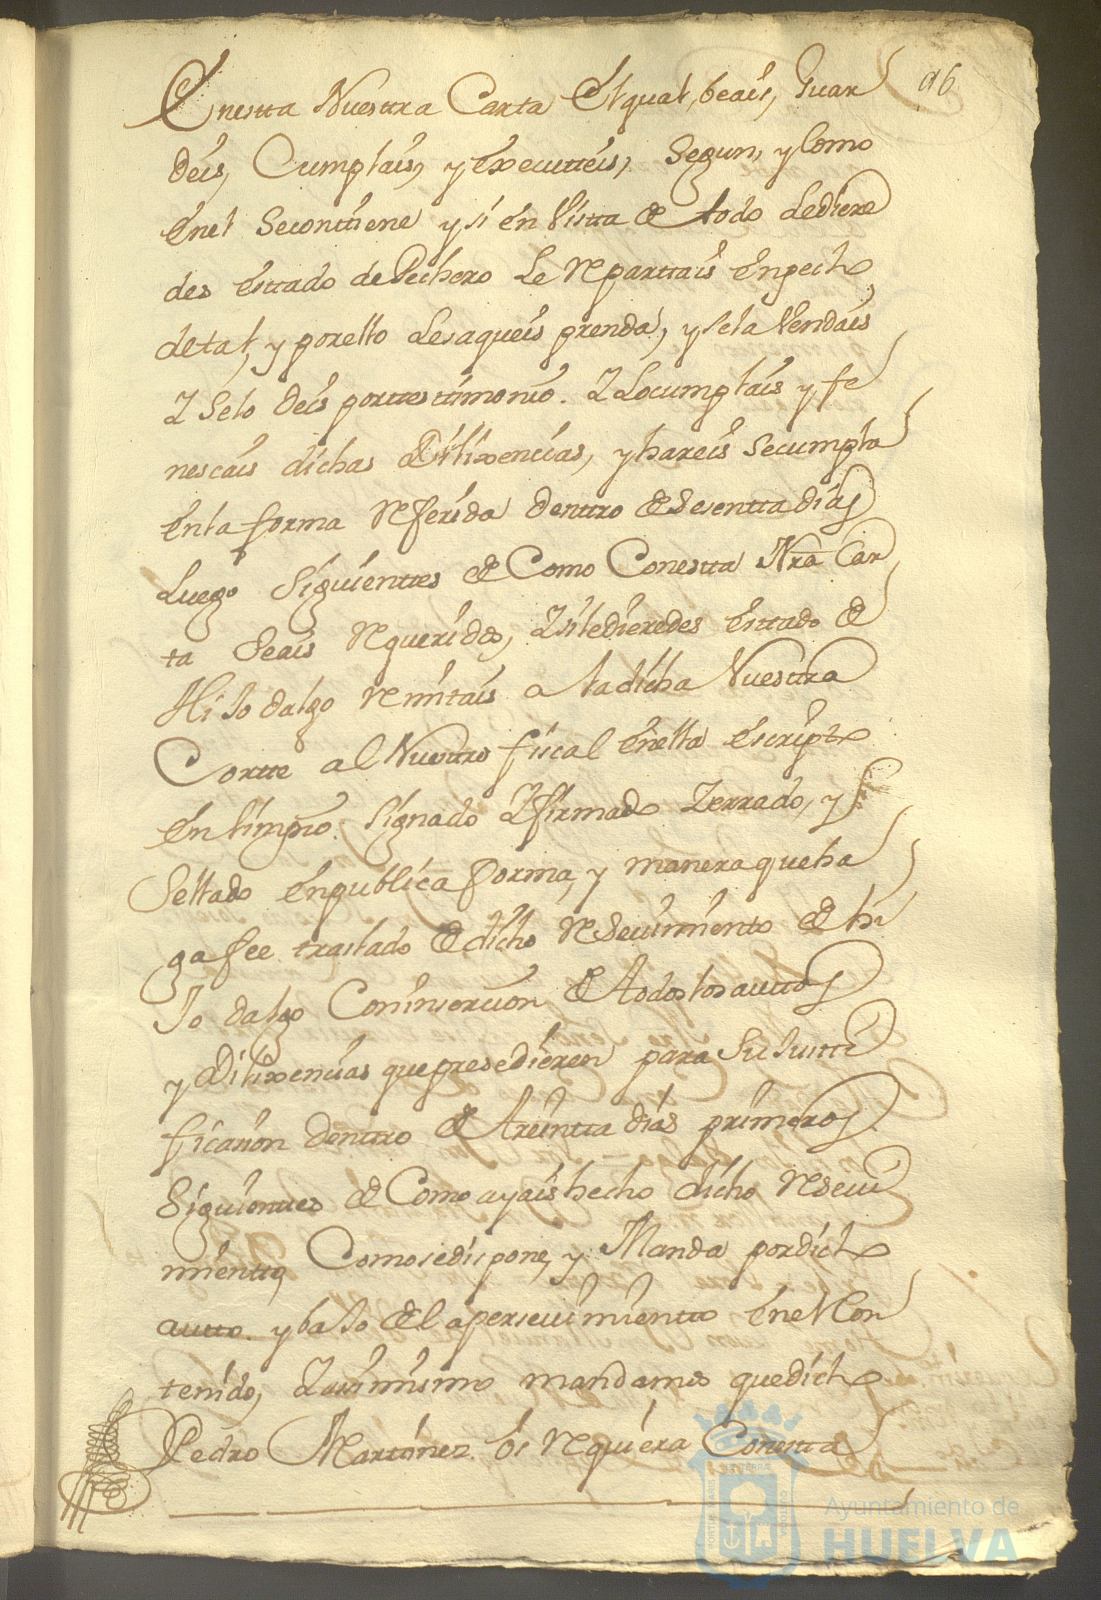 96
Enestta Nuesttra Cartta El qual, beais, Guar
deis, Cumplais, y Executteis, Segun, y Como
Enel Secontiene y si en Vistta de todo Lediere
des Esttado de Pechero Le Reparttais Enpecho
detal, y porello Lesaqueis prenda, y sela Vendais
Y Selo deis portesttimonio. Y Locumplais y fe
nescais dichas Dilixencias, y hareis Secumpla
Enla forma Referida dentro de Sesentta dias
Luego Siguienttes de Como Conestta Nra Car
ta Seais Requerido, Y si ledieredes Esttado de
Hijo dalgo Remitais a la dicha Nuesttra
Cortte al Nuestro fiscal Enella Escripto
En limpio. Signado Y firmado Zerrado, y
Sellado Enpublica forma, y manera que ha
ga fee traslado de dicho Resevimiento de hi
Jo dalgo Coninsercion de todos los auttos
y Dilixencias que presedieren para Su Justti
ficacion dentro de treintta dias primeros
Siguientes de Como ayais hecho dicho Resevi
mientto, Como se dispone, y Manda por dicho
autto. y bajo del apersevimientto Enel Con
tenido, Y asimismo mandamos que dicho
Pedro Martinez os Requiera Conestta
Ayuntamiento de
HUELVA